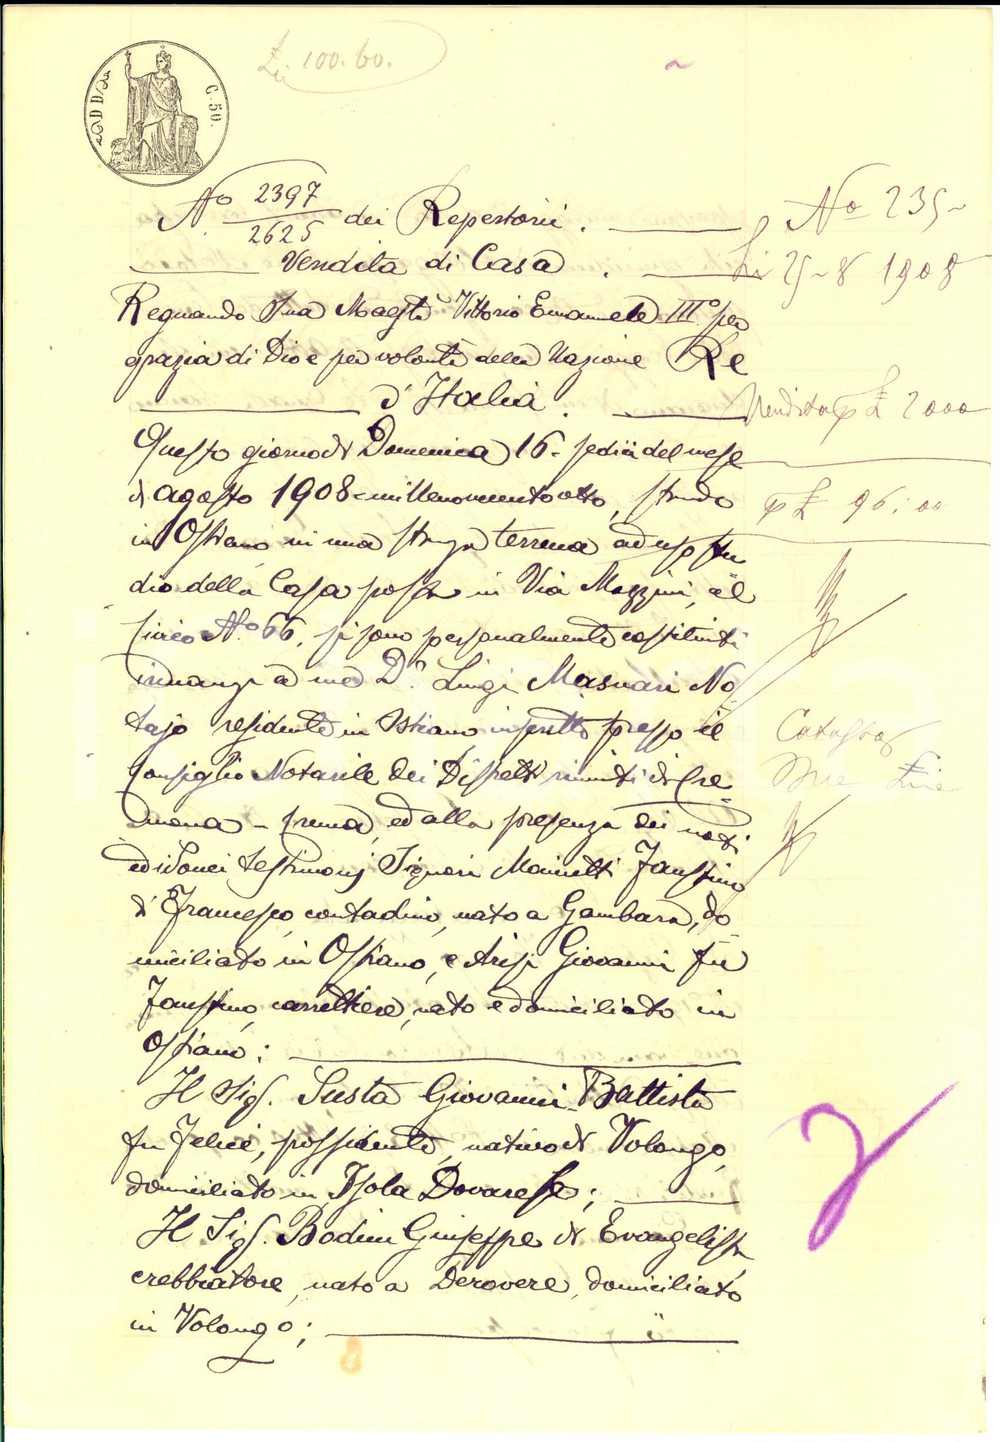 £ 100.60.
C. 50.
No 2397
2625 dei Repertorii.
Vendita di Casa.
Regnando Sua Maestà Vittorio Emanuele IIIo per
grazia di Dio e per volontà della Nazione Re
d'Italia.
Questo giorno di Domenica 16- sedici del mese
di agosto 1908-millenovecentootto, stando
in Ostiano in una stanza terrena ad uso stu
dio della Casa posta in Via Mazzini, al
civico No 66, si sono personalmente costituiti
innanzi a me Dr. Luigi Masnari No-
tajo residente in Ostiano inscritto presso il
Consiglio Notarile dei Distretti riuniti di Cre=
mona - Crema, ed alla presenza dei noti
ed idonei testimonj Signori Mainetti Faustino
di Francesco, contadino, nato a Gambara, do
miciliato in Ostiano, e Arisi Giovanni fu
Faustino, carrettiere, nato e domiciliato in
Ostiano;
Il Sig. Susta Giovanni Battista
fu Felice, possidente, nativo di Volongo,
domiciliato in Isola Dovarese;
Il Sig. Bodini Giuseppe di Evangelista
trebbiatore, nato a Derovere, domiciliato
in Volongo;
No 235-
Li 25-8 1908
Vendita p £ 2000
p £ 96:00
Catasto